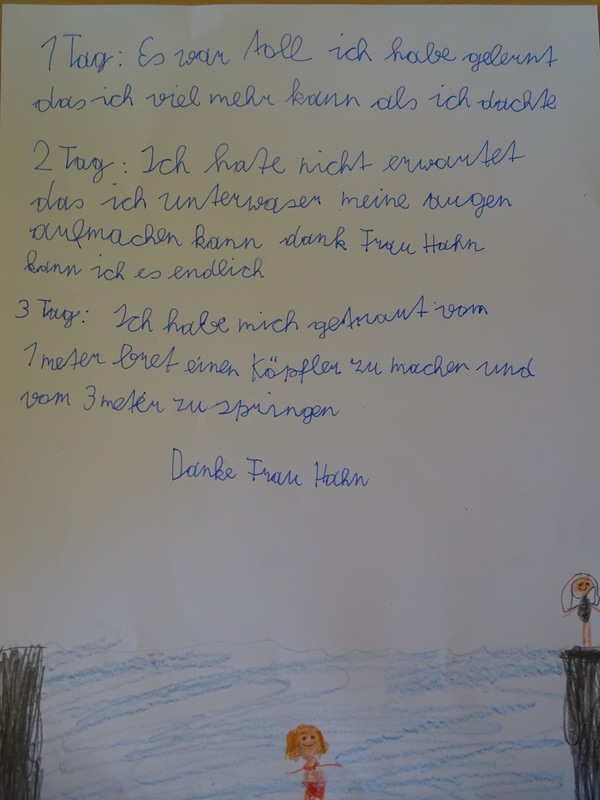 1 Tag: Es war toll ich habe gelernt
das ich viel mehr kann als ich dachte
2 Tag: Ich hate nicht erwartet
das ich unterwaser meine augen
aufmachen kann dank Frau Hahn
kann ich es endlich
3 Tag: Ich habe mich getraut vom
1 meter bret einen Köpfler zu machen und
vom 3 meter zu springen
Danke Frau Hahn